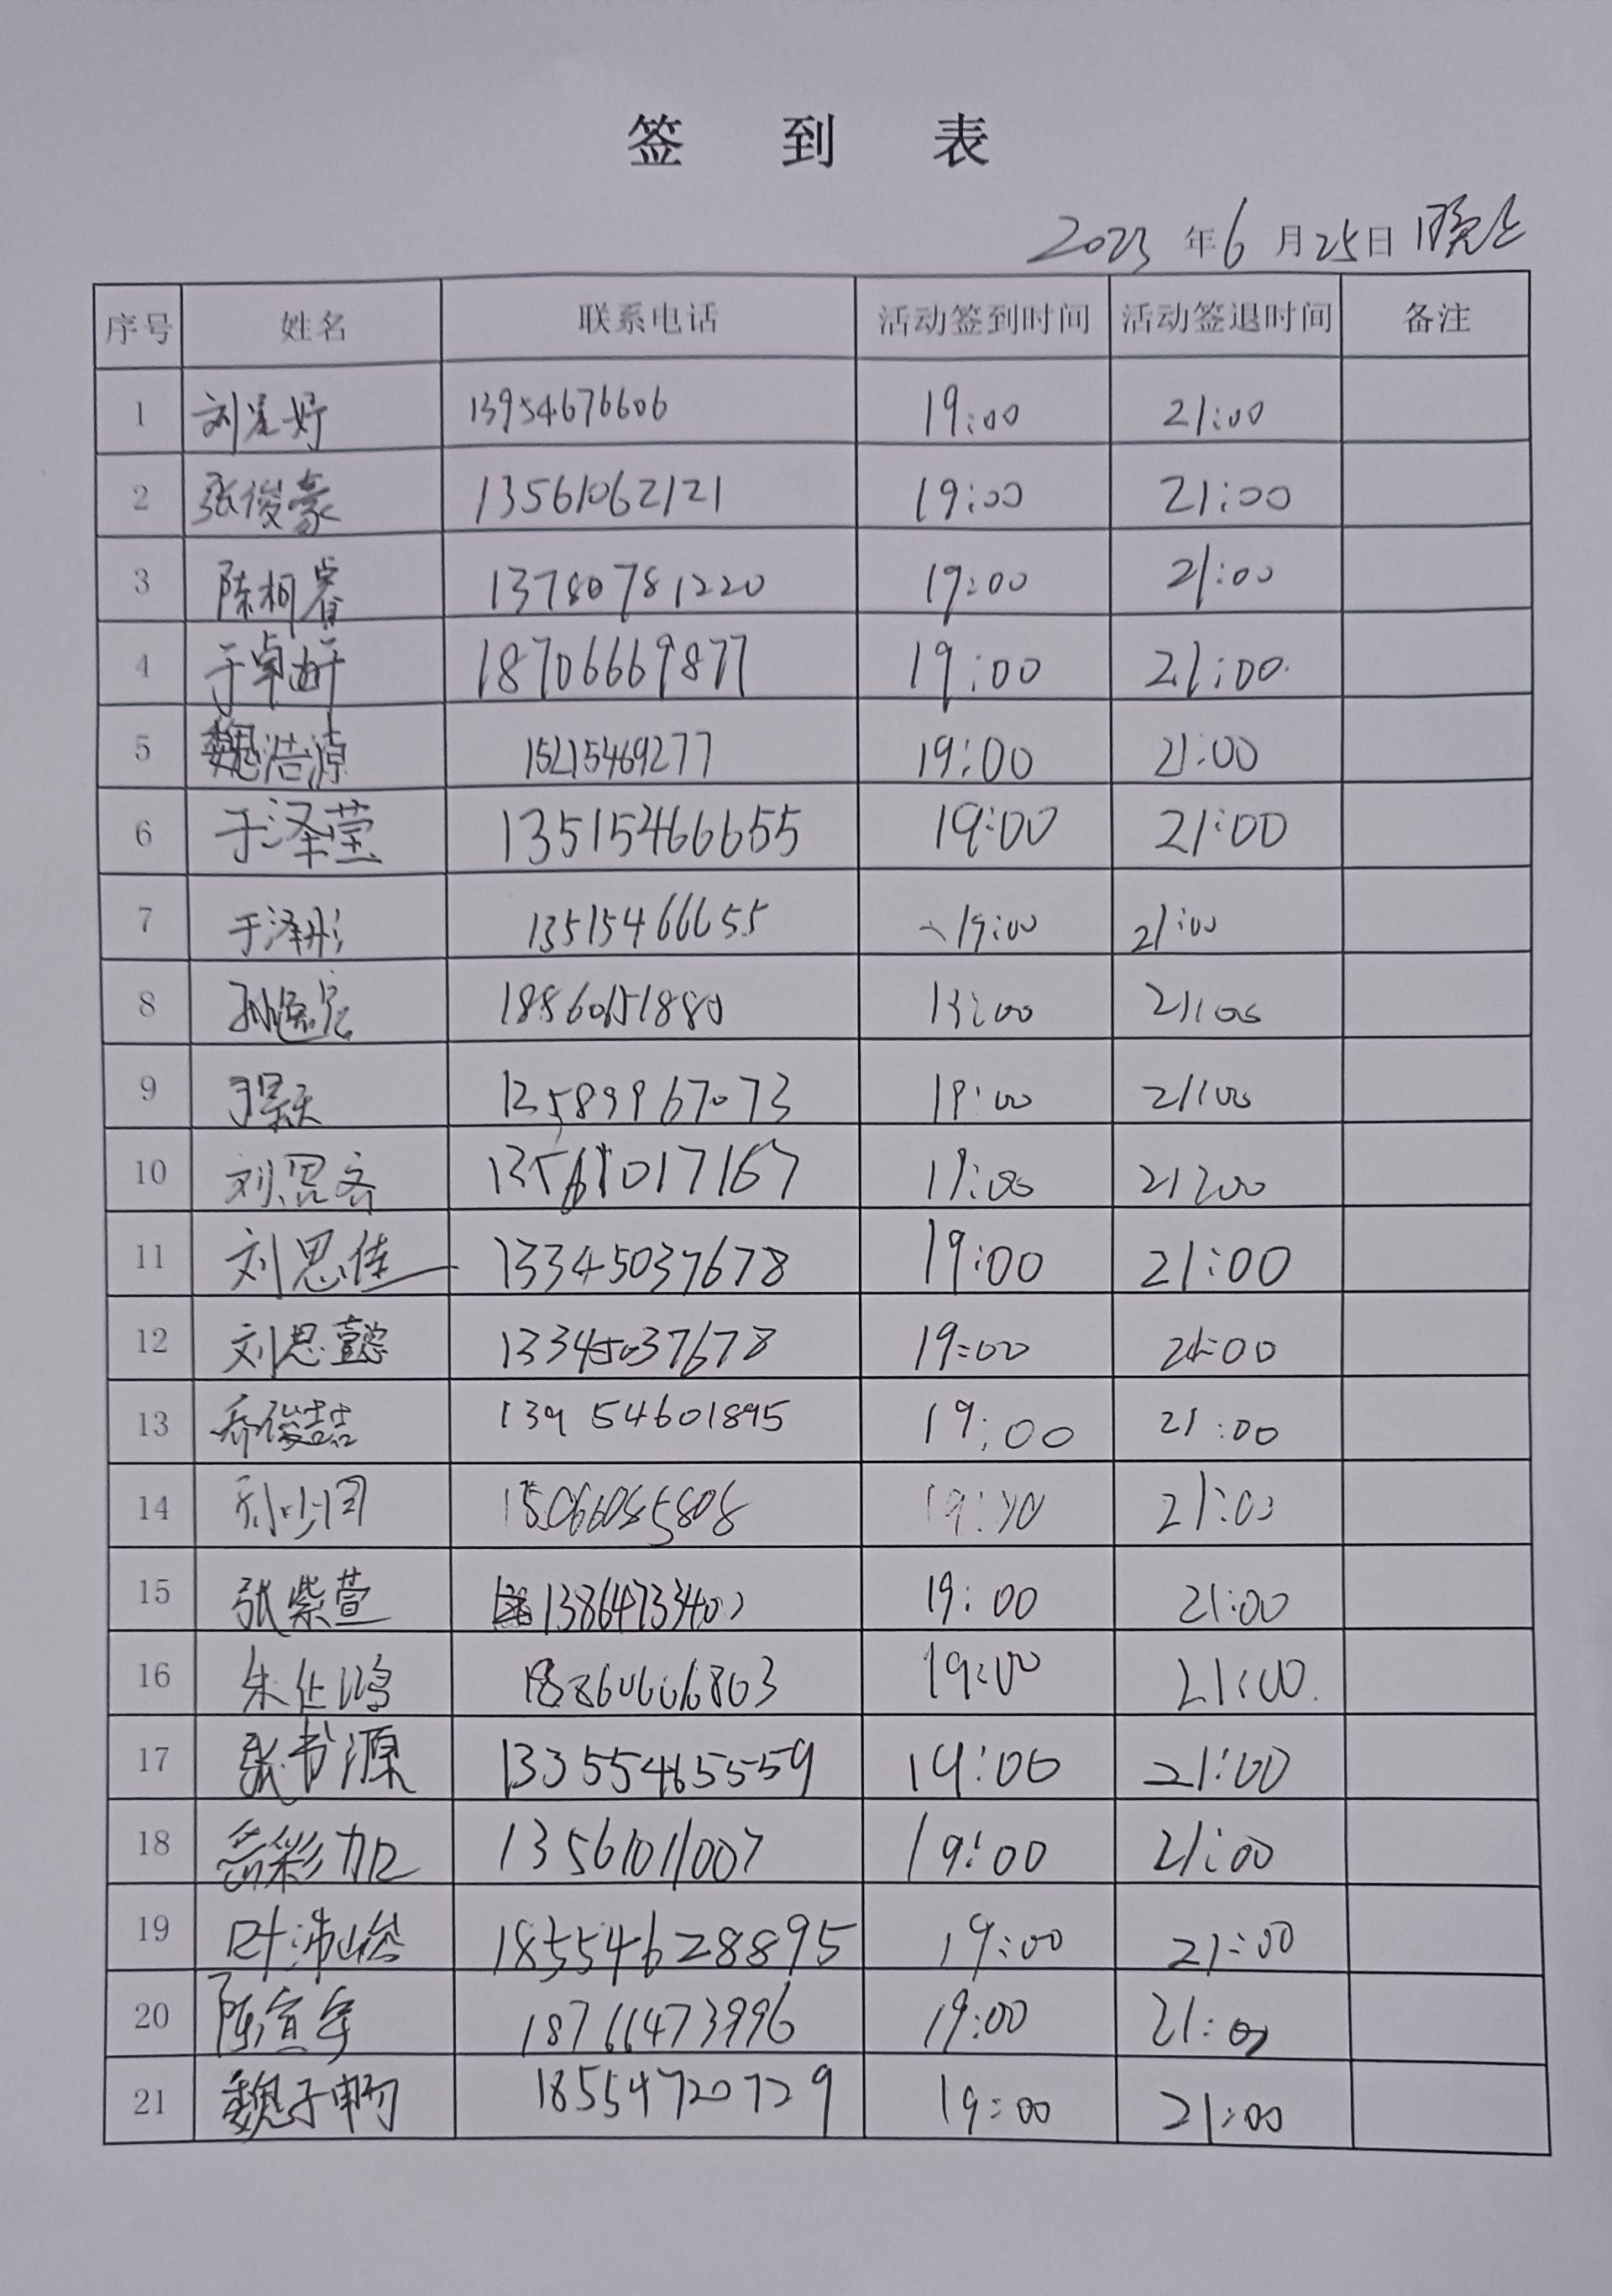 签 到 表
2023 年 6 月 25 日 晚上
序号 姓名 联系电话 活动签到时间 活动签退时间 备注
1 刘 妤 13954676606 19:00 21:00
2 张俊豪 13561062121 19:00 21:00
3 陈柯睿 13780781220 19:00 21:00
4 于卓 18706669877 19:00 21:00
5 魏浩源 15215469277 19:00 21:00
6 于泽莹 13515466655 19:00 21:00
7 于泽彤 13515466655 19:00 21:00
8 孙 宸 21:00
9 于昊天 19:00 21:00
10 刘思齐 19:00 21:00
11 刘思佳 13345037678 19:00 21:00
12 刘思懿 13345037678 19:00 21:00
13 乔俊喆 13954601895 19:00 21:00
14 15066085808 21:00
15 张紫萱 19:00 21:00
16 朱 鸿 18860606803 19:00 21:00
17 张书源 13355465559 19:00 21:00
18 岳彩加 13561011007 19:00 21:00
19 叶沛 18554628895 19:00 21:00
20 陈宣 18766473996 19:00 21:00
21 魏子 18554720729 19:00 21:00